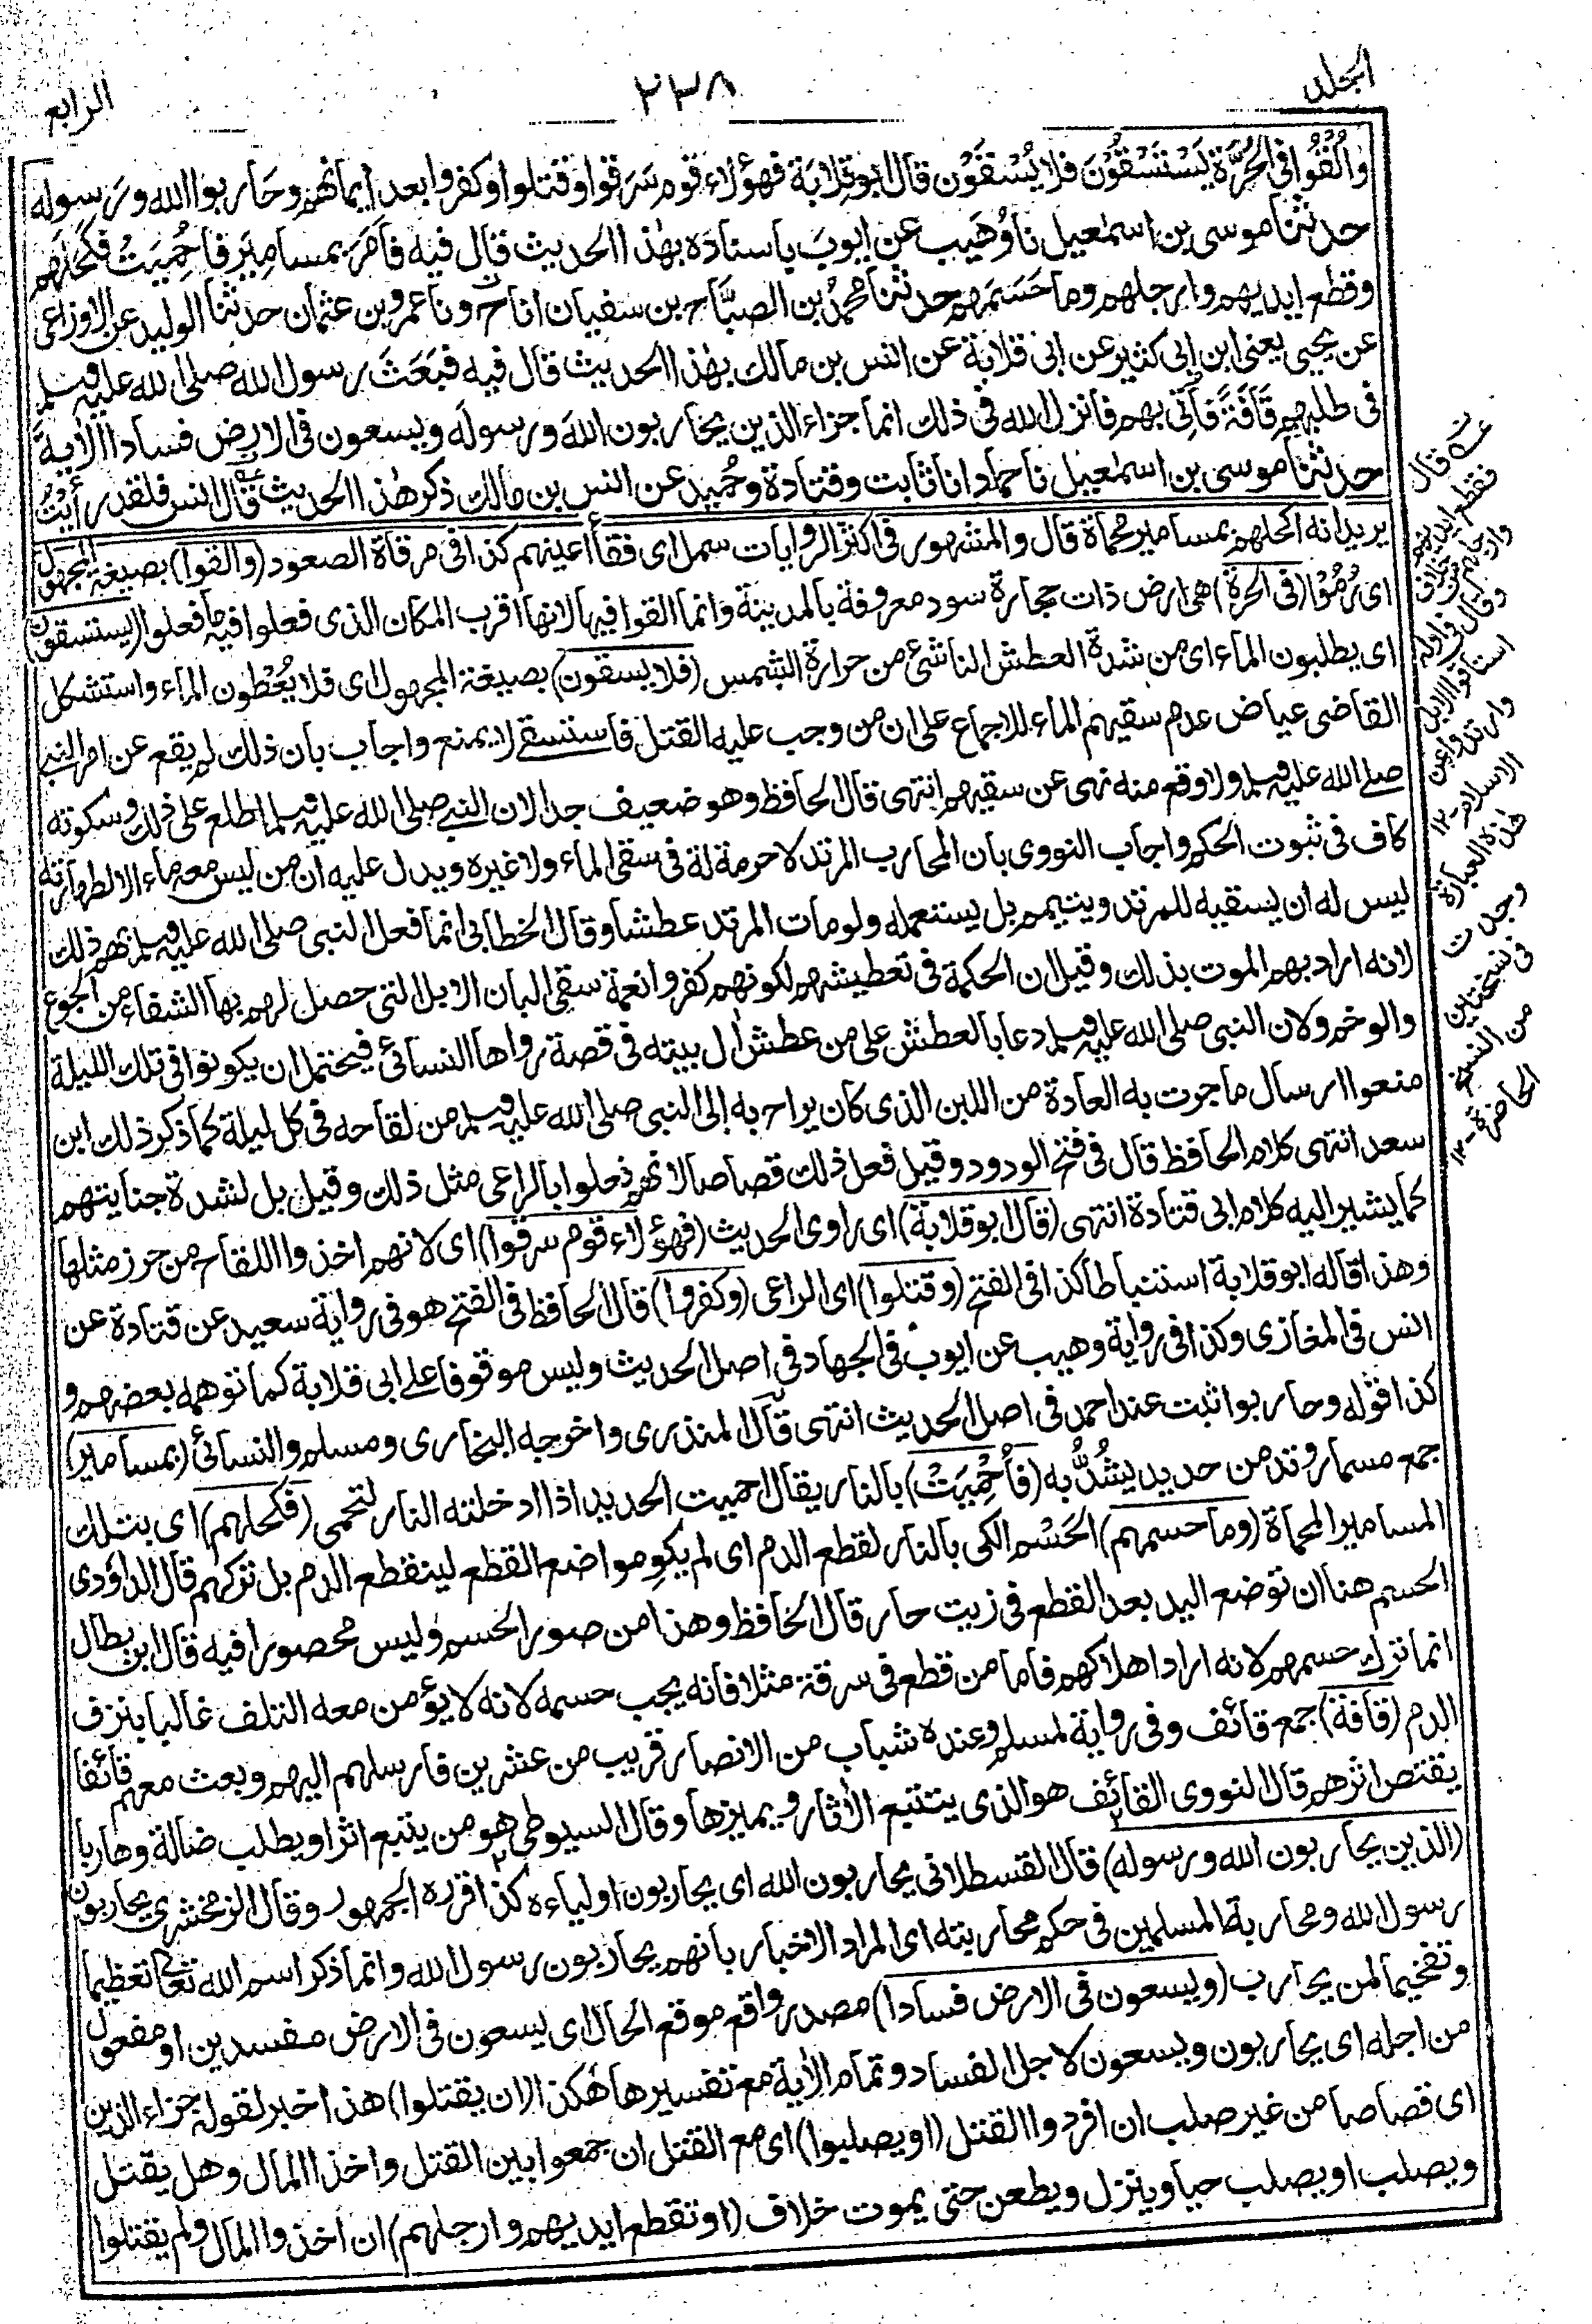 الجلد
٢٣٨
الرابع
وأُلْقُوا في الحَرَّة يَسْتَسْقُوْنَ فلا يُسْقَوْن قال ابو قِلابَة فهؤلاء قوم سَرَقوا وقتلوا وكفروا بعد ايمانهم وحَاربوا الله ورسوله
حدثنا موسى بن اسمٰعيل نا وُهَيب عن ايوبَ باسناده بهٰذا الحديث قال فيه فأمَرَ بمسامِيْرَ فأُحْمِيَتْ فكَحَلَهم
وقطع ايديهم وارجلهم وما حَسَمَهم حدثنا محمدُ بن الصبَّاح بن سفيان انا ح ونا عمرو بن عثمان حدثنا الوليد عن الاوزاعي
عن يحيى يعني ابن ابي كثير عن ابي قلابة عن انس بن مالك بهٰذا الحديث قال فيه فبَعَثَ رسول الله صلى الله عليه وسلم
في طلبهم قَافَةً فأُتي بهم فانزل الله في ذلك انما جزاء الذين يحاربون اللهَ ورسولَه ويسعون في الارض فسادا الاٰيةَ
حدثنا موسى بن اسمٰعيل نا حماد انا ثابت وقتادة وحُميد عن انس بن مالك ذكر هٰذا الحديث قال انس فلقد رأيْتُ
يريد انه اكحلهم بمسامير محماة قال والمشهور في اكثر الروايات سمل اى فقأ أعينهم كذا في مرقاة الصعود (والقوا) بصيغة المجهول
اى رُمُوْا (في الحرة) هى ارض ذات حجارة سود معروفة بالمدينة وانما القوا فيها لانها اقرب المكان الذى فعلوا فيه ما فعلوا (يستسقون)
اى يطلبون الماء اى من شدة العطش الناشئ من حرارة الشمس (فلا يسقون) بصيغة المجهول اى فلا يُعْطون الماء واستشكل
القاضى عياض عدم سقيهم الماء للاجماع على ان من وجب عليه القتل فاستسقى لا يمنع واجاب بان ذلك لم يقع عن امر النبي
صلى الله عليه وسلم ولا وقع منه نهى عن سقيهم انتهى قال الحافظ وهو ضعيف جدا لان النبي صلى الله عليه وسلم اطلع على ذلك وسكوته
كاف في ثبوت الحكم واجاب النووى بان المحارب المرتد لا حرمة له في سقى الماء ولا غيره ويدل عليه ان من ليس معه ماء الا لطهارته
ليس له ان يسقيه للمرتد ويتيمم بل يستعمله ولو مات المرتد عطشا وقال الخطابى انما فعل النبى صلى الله عليه وسلم بهم ذلك
لانه اراد بهم الموت بذلك وقيل ان الحكمة في تعطيشهم لكونهم كفروا نعمة سقى البان الابل التى حصل لهم بها الشفاء من الجوع
والوخم ولان النبى صلى الله عليه وسلم دعا بالعطش على من عطش اٰل بيته في قصة رواها النسائى فيحتمل ان يكونوا في تلك الليلة
منعوا ارسال ما جرت به العادة من اللبن الذى كان يراح به إلى النبى صلى الله عليه وسلم من لقاحه في كل ليلة كما ذكر ذلك ابن
سعد انتهى كلام الحافظ قال في فتح الودود وقيل فعل ذلك قصاصا لانهم فعلوا بالراعى مثل ذلك وقيل بل لشدة جنايتهم
كما يشير اليه كلام ابى قتادة انتهى (قال ابو قلابة) اى راوى الحديث (فهؤلاء قوم سرقوا) اى لانهم اخذوا اللقاح من حرز مثلها
وهذا قاله ابو قلابة استنباطا كذا في الفتح (وقتلوا) اى الراعى (وكفروا) قال الحافظ في الفتح هو في رواية سعيد عن قتادة عن
انس في المغازى وكذا في رواية وهيب عن ايوب في الجهاد في اصل الحديث وليس موقوفا على ابى قلابة كما توهمه بعضهم و
كذا قوله وحاربوا ثبت عند احمد في اصل الحديث انتهى قال المنذرى واخرجه البخارى ومسلم والنسائى (بمسامير)
جمع مسمار وتد من حديد يُشَدُّ به (فأُحْمِيَتْ) بالنار يقال احميت الحديد اذا ادخلته النار لتحمى (فكحلهم) اى بتلك
المسامير المحماة (وما حسمهم) الحَسْم الكى بالنار لقطع الدم اى لم يكوِ مواضع القطع لينقطع الدم بل تركهم قال الداؤدى
الحسم هنا ان توضع اليد بعد القطع في زيت حار قال الحافظ وهذا من صور الحسم وليس محصورا فيه قال ابن بطال
انما ترك حسمهم لانه اراد اهلاكهم فاما من قطع في سرقة مثلا فانه يجب حسمه لانه لا يؤمن معه التلف غالبا بنزف
الدم (قافة) جمع قائف وفي رواية لمسلم وعنده شباب من الانصار قريب من عشرين فارسلهم اليهم وبعث معهم قائفا
يقتص اثرهم قال النووى القائف هو الذى يتتبع الاٰثار ويميزها وقال السيوطى هو من يتبع اثرا ويطلب ضالة وهاربا
(الذين يحاربون الله ورسوله) قال القسطلانى يحاربون الله اى يحاربون اولياءه كذا قرره الجمهور وقال الزمخشرى يحاربون
رسول الله ومحاربة المسلمين في حكم محاربته اى المراد الاخبار بانهم يحاربون رسول الله وانما ذكر اسم الله تعالى تعظيما
وتفخيما لمن يحارب (ويسعون في الارض فسادا) مصدر واقع موقع الحال اى يسعون في الارض مفسدين او مفعول
من اجله اى يحاربون ويسعون لاجل الفساد وتمام الاٰية مع تفسيرها هٰكذا (ان يقتلوا) هذا خبر لقوله جزاء الذين
اى قصاصا من غير صلب ان افردوا القتل (او يصلبوا) اى مع القتل ان جمعوا بين القتل واخذ المال وهل يقتل
ويصلب او يصلب حيا وينزل ويطعن حتى يموت خلاف (او تقطع ايديهم وارجلهم) ان اخذوا المال ولم يقتلوا
قال
فقطع ايديهم
وارجلهم من خلاف
وقال في اوله
استاقوا الابل
وارتدوا عن
الاسلام ١٢
هٰذه العبارة
وجدت
في نسختين
من النسخ
الحاضرة ١٢